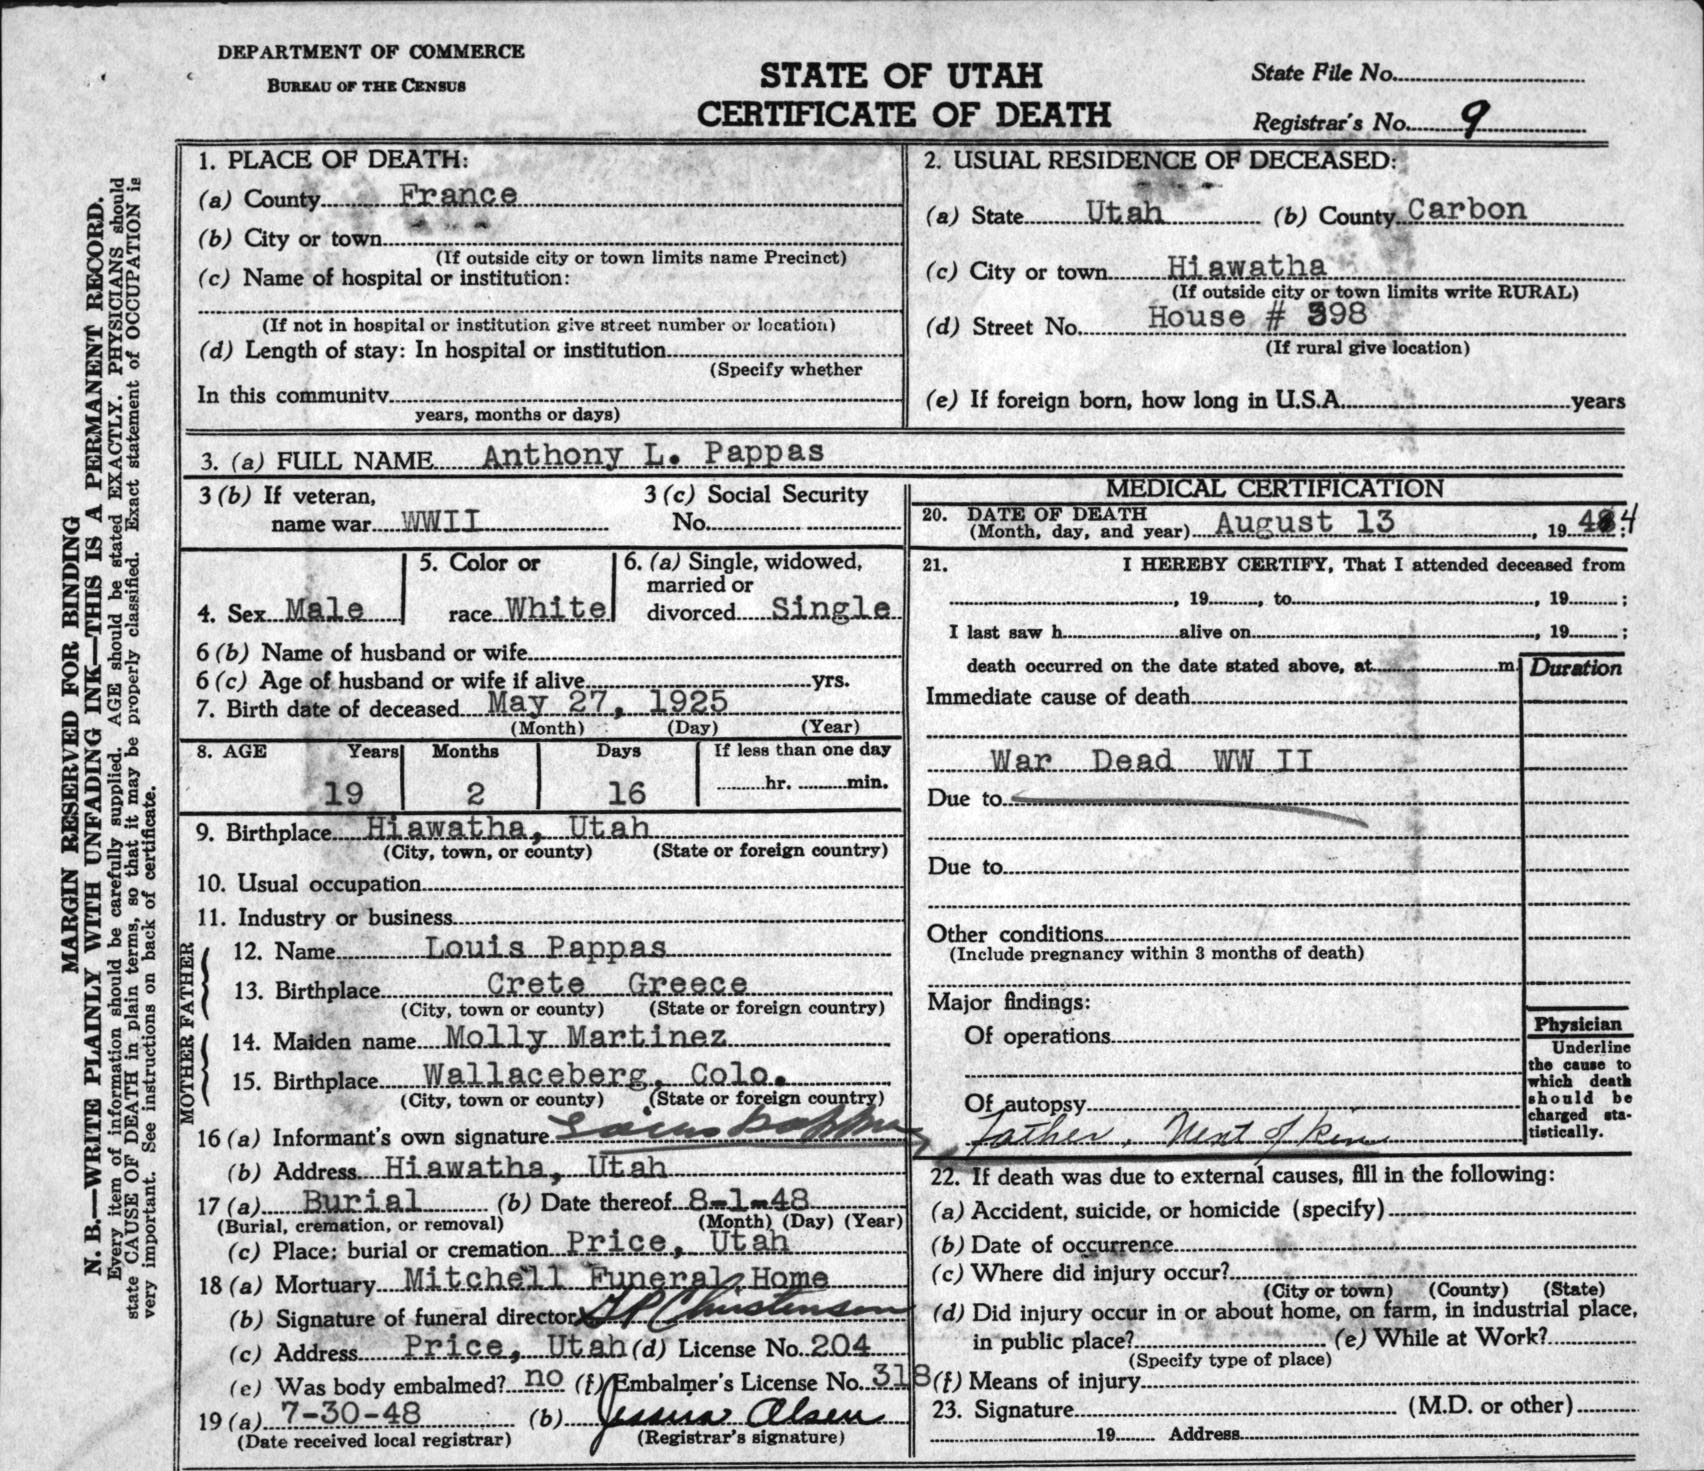 DEPARTMENT OF COMMERCE
BUREAU OF THE CENSUS
STATE OF UTAH
CERTIFICATE OF DEATH
State File No.
Registrar's No. 9
MARGIN RESERVED FOR BINDING
N. B.—WRITE PLAINLY WITH UNFADING INK—THIS IS A PERMANENT RECORD.
Every item of information should be carefully supplied. AGE should be stated EXACTLY. PHYSICIANS should
state CAUSE OF DEATH in plain terms, so that it may be properly classified. Exact statement of OCCUPATION is
very important. See instructions on back of certificate.
1. PLACE OF DEATH:
(a) County France
(b) City or town
(If outside city or town limits name Precinct)
(c) Name of hospital or institution:
(If not in hospital or institution give street number or location)
(d) Length of stay: In hospital or institution
(Specify whether
In this community
years, months or days)
2. USUAL RESIDENCE OF DECEASED:
(a) State Utah (b) County Carbon
(c) City or town Hiawatha
(If outside city or town limits write RURAL)
(d) Street No. House # 398
(If rural give location)
(e) If foreign born, how long in U.S.A. years
3. (a) FULL NAME Anthony L. Pappas
3 (b) If veteran,
name war WWII
3 (c) Social Security
No.
4. Sex Male
5. Color or
race White
6. (a) Single, widowed,
married or
divorced Single
6 (b) Name of husband or wife
6 (c) Age of husband or wife if alive yrs.
7. Birth date of deceased May 27, 1925
(Month) (Day) (Year)
8. AGE Years Months Days If less than one day
19 2 16 hr. min.
9. Birthplace Hiawatha, Utah
(City, town, or county) (State or foreign country)
10. Usual occupation
11. Industry or business
FATHER
12. Name Louis Pappas
13. Birthplace Crete Greece
(City, town or county) (State or foreign country)
MOTHER
14. Maiden name Molly Martinez
15. Birthplace Wallaceberg, Colo.
(City, town or county) (State or foreign country)
16 (a) Informant's own signature Louis Pappas
(b) Address Hiawatha, Utah
17 (a) Burial (b) Date thereof 8-1-48
(Burial, cremation, or removal) (Month) (Day) (Year)
(c) Place: burial or cremation Price, Utah
18 (a) Mortuary Mitchell Funeral Home
(b) Signature of funeral director x Christenson
(c) Address Price, Utah (d) License No. 204
(e) Was body embalmed? no (f) Embalmer's License No. 318
19 (a) 7-30-48 (b) Olsen
(Date received local registrar) (Registrar's signature)
MEDICAL CERTIFICATION
20. DATE OF DEATH
(Month, day, and year) August 13, 1944
21. I HEREBY CERTIFY, That I attended deceased from
, 19 , to , 19 ;
I last saw h alive on , 19 ;
death occurred on the date stated above, at m.
Duration
Immediate cause of death
War Dead WW II
Due to
Due to
Other conditions
(Include pregnancy within 3 months of death)
Major findings:
Of operations
Of autopsy
Father, Next of kin
Physician
Underline
the cause to
which death
should be
charged sta-
tistically.
22. If death was due to external causes, fill in the following:
(a) Accident, suicide, or homicide (specify)
(b) Date of occurrence
(c) Where did injury occur?
(City or town) (County) (State)
(d) Did injury occur in or about home, on farm, in industrial place,
in public place? (e) While at Work?
(Specify type of place)
(f) Means of injury
23. Signature (M.D. or other)
19 Address